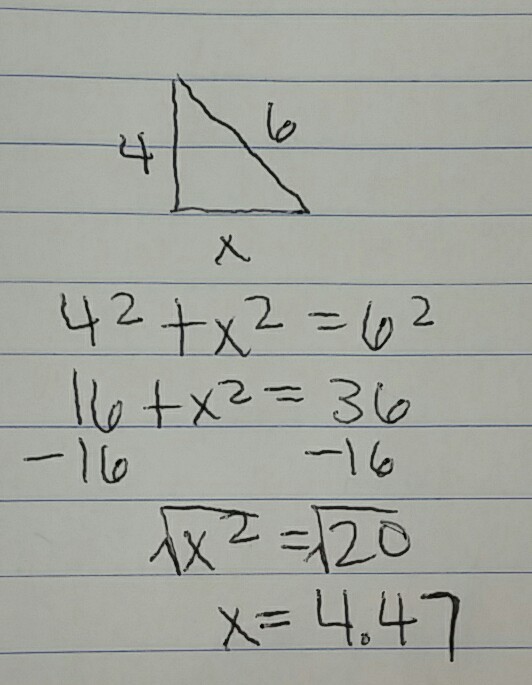 4 6
x
4² + x² = 6²
16 + x² = 36
-16 -16
√x² = √20
x = 4.47